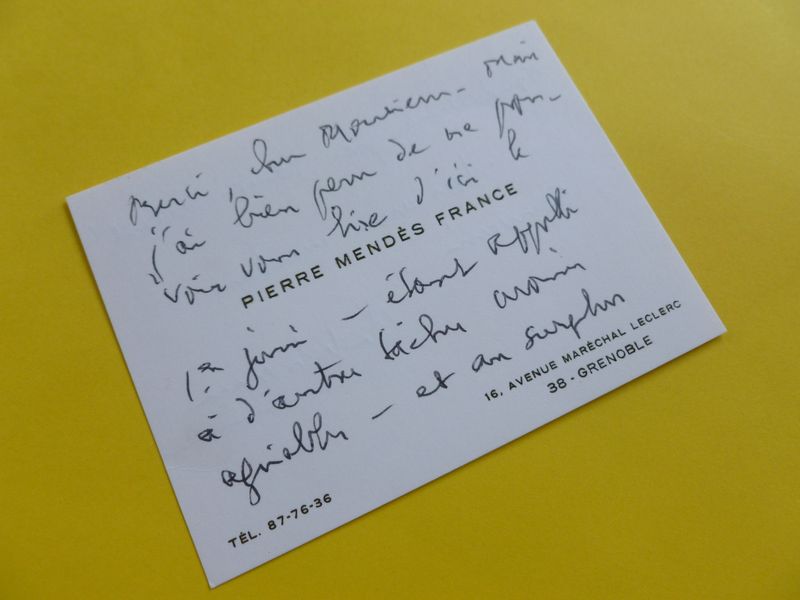 Merci, cher Monsieur - Mais
j'ai bien peur de ne pou-
voir vous lire d'ici le
PIERRE MENDÈS FRANCE
1er juin - étant appelé
à d'autres tâches moins
agréables - et au surplus
16, AVENUE MARÉCHAL LECLERC
38 - GRENOBLE
TÉL. 87-76-36